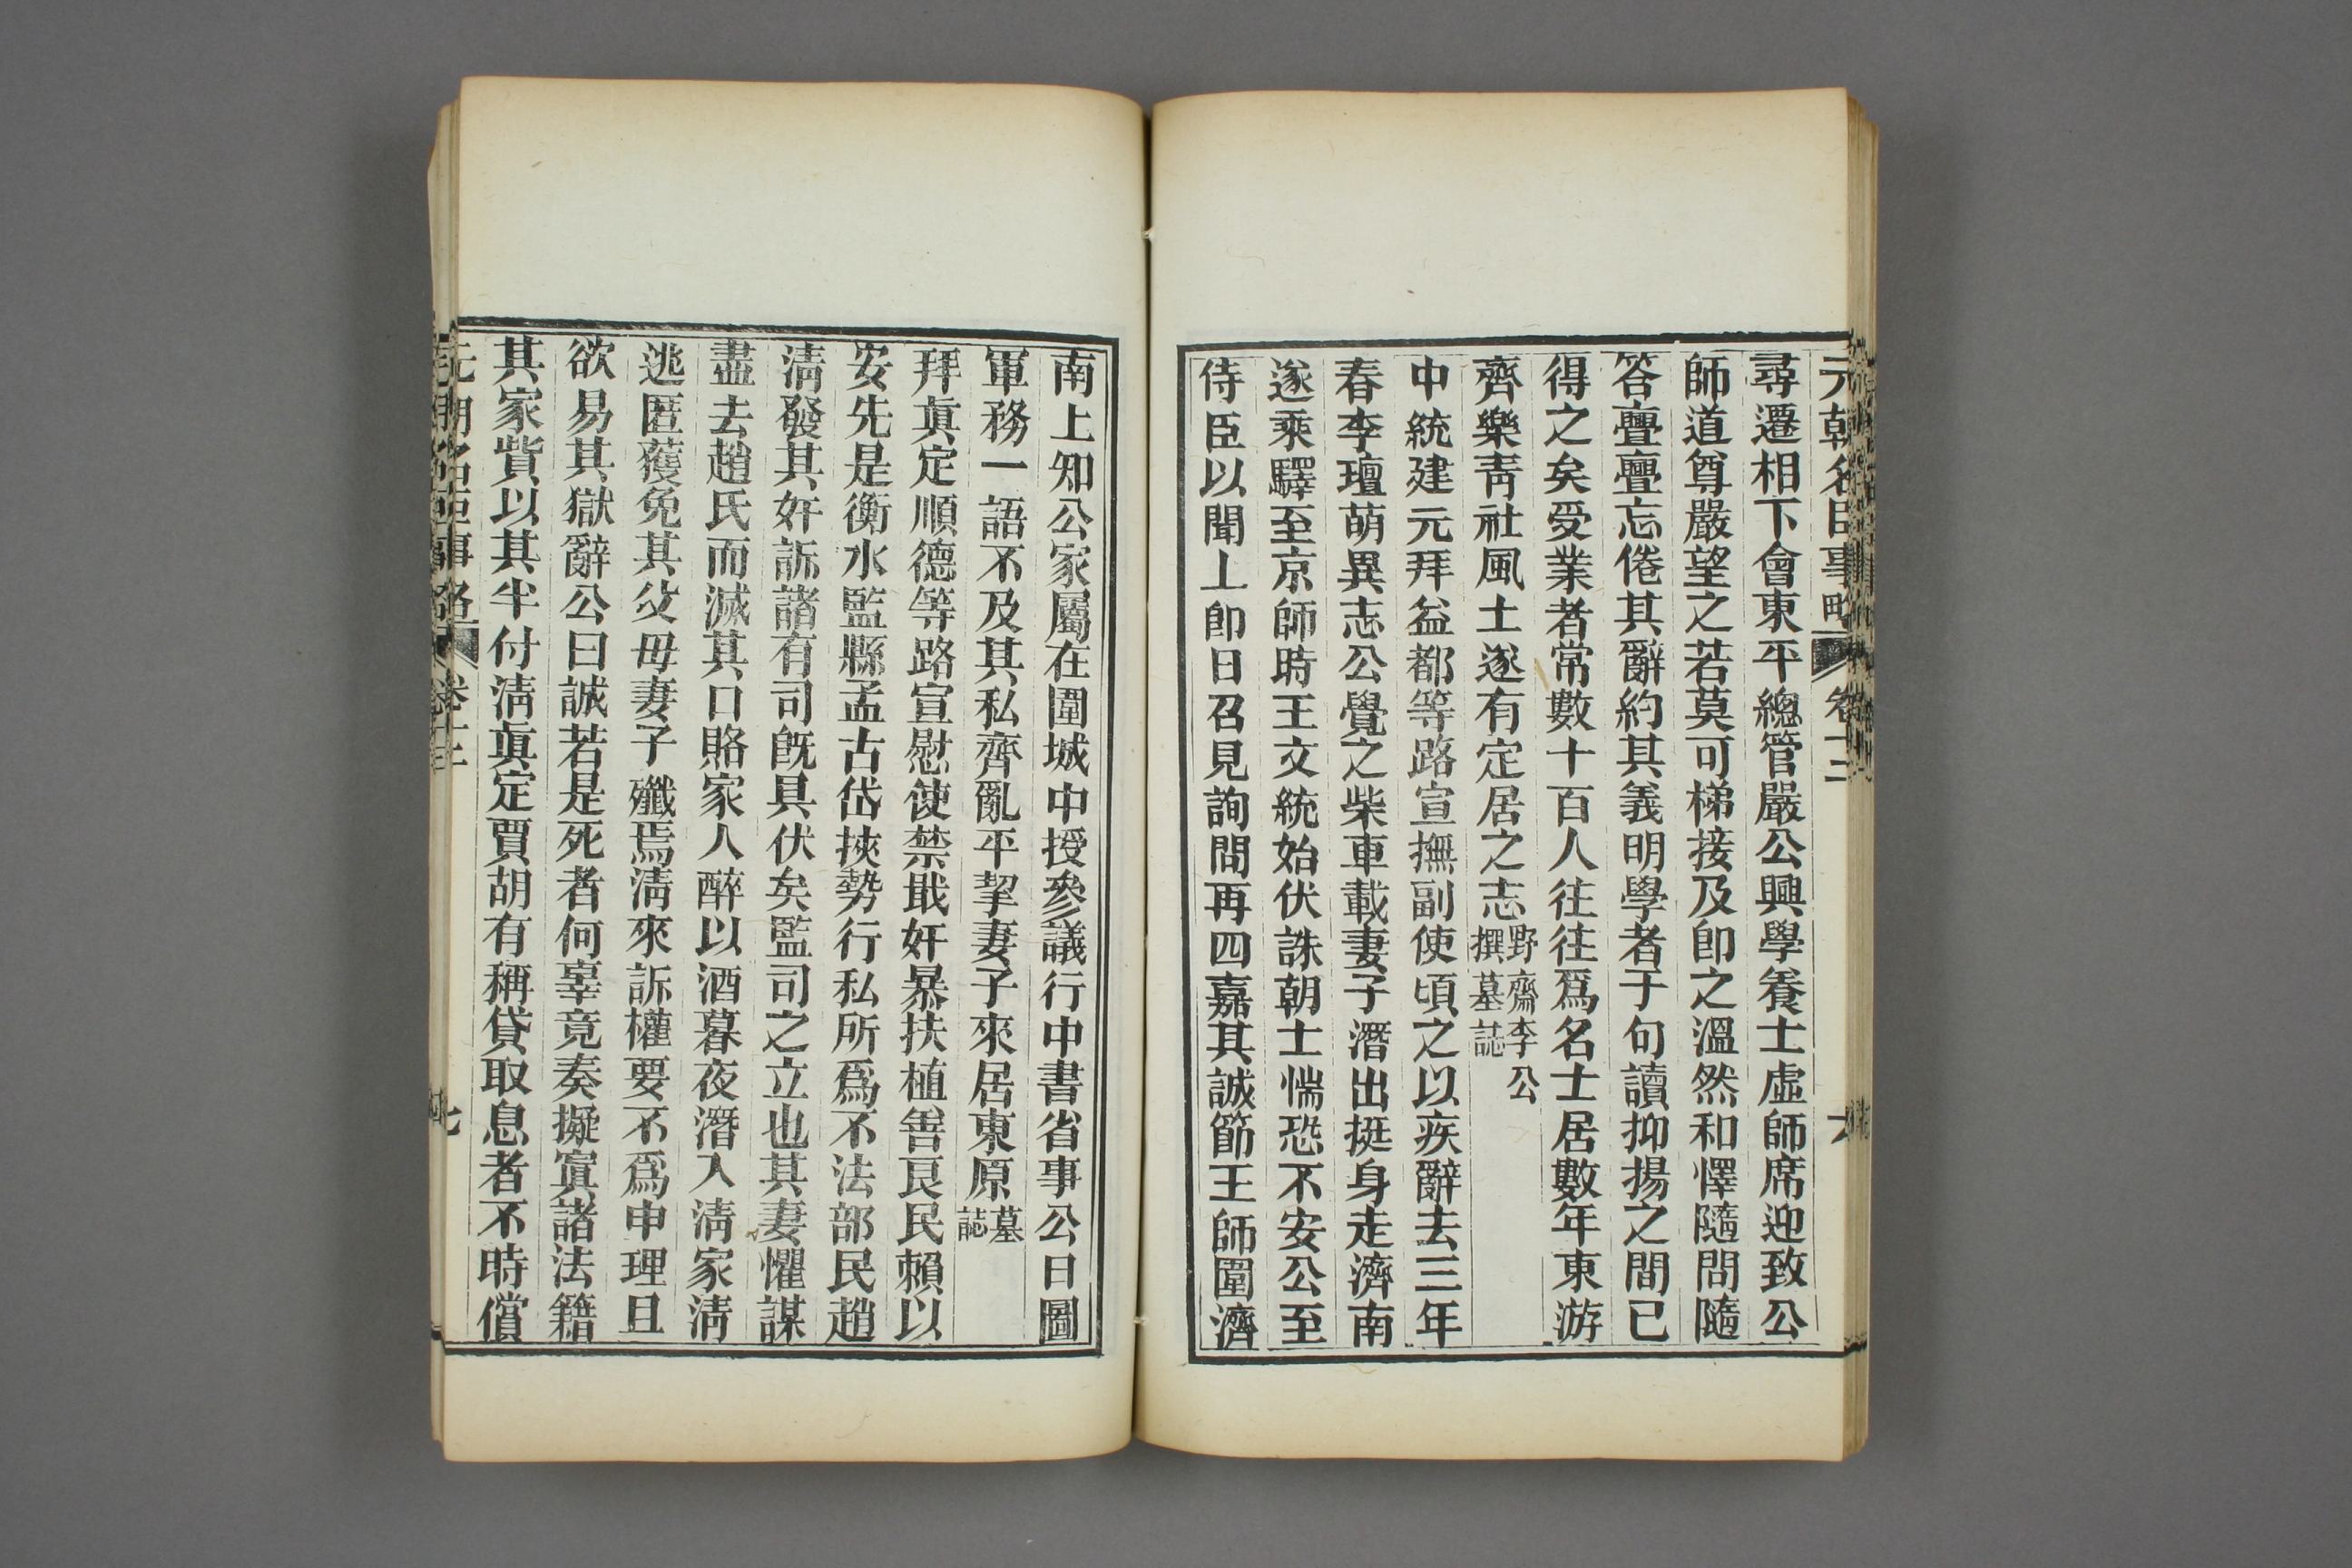 元朝名臣事略 卷十二 六
尋遷相下會東平總管嚴公興學養士虛師席迎致公
師道尊嚴望之若莫可梯接及卽之溫然和懌隨問隨
答亹亹忘倦其辭約其義明學者于句讀抑揚之間已
得之矣受業者常數十百人往往爲名士居數年東游
齊樂靑社風土遂有定居之志野齋李公撰墓誌
中統建元拜益都等路宣撫副使頃之以疾辭去三年
春李璮萌異志公覺之柴車載妻子潛出挺身走濟南
遂乘驛至京師時王文統始伏誅朝士惴恐不安公至
侍臣以聞上卽日召見詢問再四嘉其誠節王師圍濟
南上知公家屬在圍城中授參議行中書省事公日圖
軍務一語不及其私齊亂平挈妻子來居東原墓誌
拜眞定順德等路宣慰使禁戢奸暴扶植善良民賴以
安先是衡水監縣孟古岱挾勢行私所爲不法部民趙
淸發其奸訴諸有司旣具伏矣監司之立也其妻懼謀
盡去趙氏而滅其口賂家人醉以酒暮夜潛入淸家淸
逃匿獲免其父母妻子殲焉淸來訴權要不爲申理且
欲易其獄辭公曰誠若是死者何辜竟奏擬寘諸法籍
其家貲以其半付淸眞定賈胡有稱貸取息者不時償
元朝名臣事略 卷十二 七